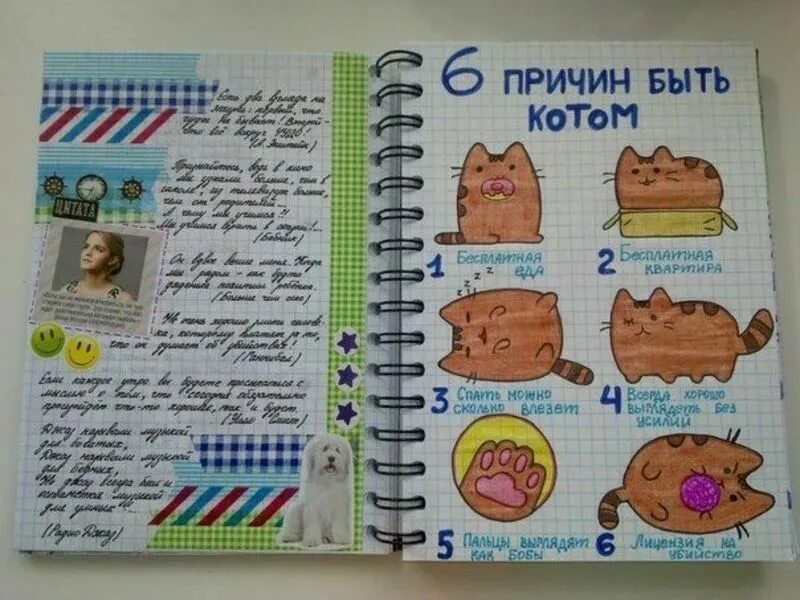 Есть два взгляда на
жизнь: первый, что
чуды не бывает! Второй-
что всё вокруг ЧУДО!
(А. Энштейн)
Признайтесь, ведь в кино
мы узнали больше, чем в
школе, из телевизора больше,
чем от родителей...
А чему мы учимся?!
Мы учимся верить в сказки!...
ЦИТАТА
Он вдвое выше меня. Когда
мы рядом - как будто
дяденька похитил ребёнка.
(Больше чем секс)
Не очень хорошо злить челове-
ка, которому платят за то,
что он думает об убийствах!
(Ганнибал)
Если каждое утро вы будете просыпаться с
мыслью о том, что сегодня обязательно
произойдёт что-то хорошее, так и будет.
(Уилл Смит)
Джаз называли музыкой
для богатых,
Джаз называли музыкой
для бедных,
Но джаз всегда был и
останется музыкой
для умных
(Радио Джаз)
6 ПРИЧИН БЫТЬ
КОТОМ
1 Бесплатная
еда
2 Бесплатная
квартира
3 Спать можно
сколько влезет
4 Всегда хорошо
выглядеть без
усилий
5 Пальцы выглядят
как бобы
6 Лицензия на
убийство